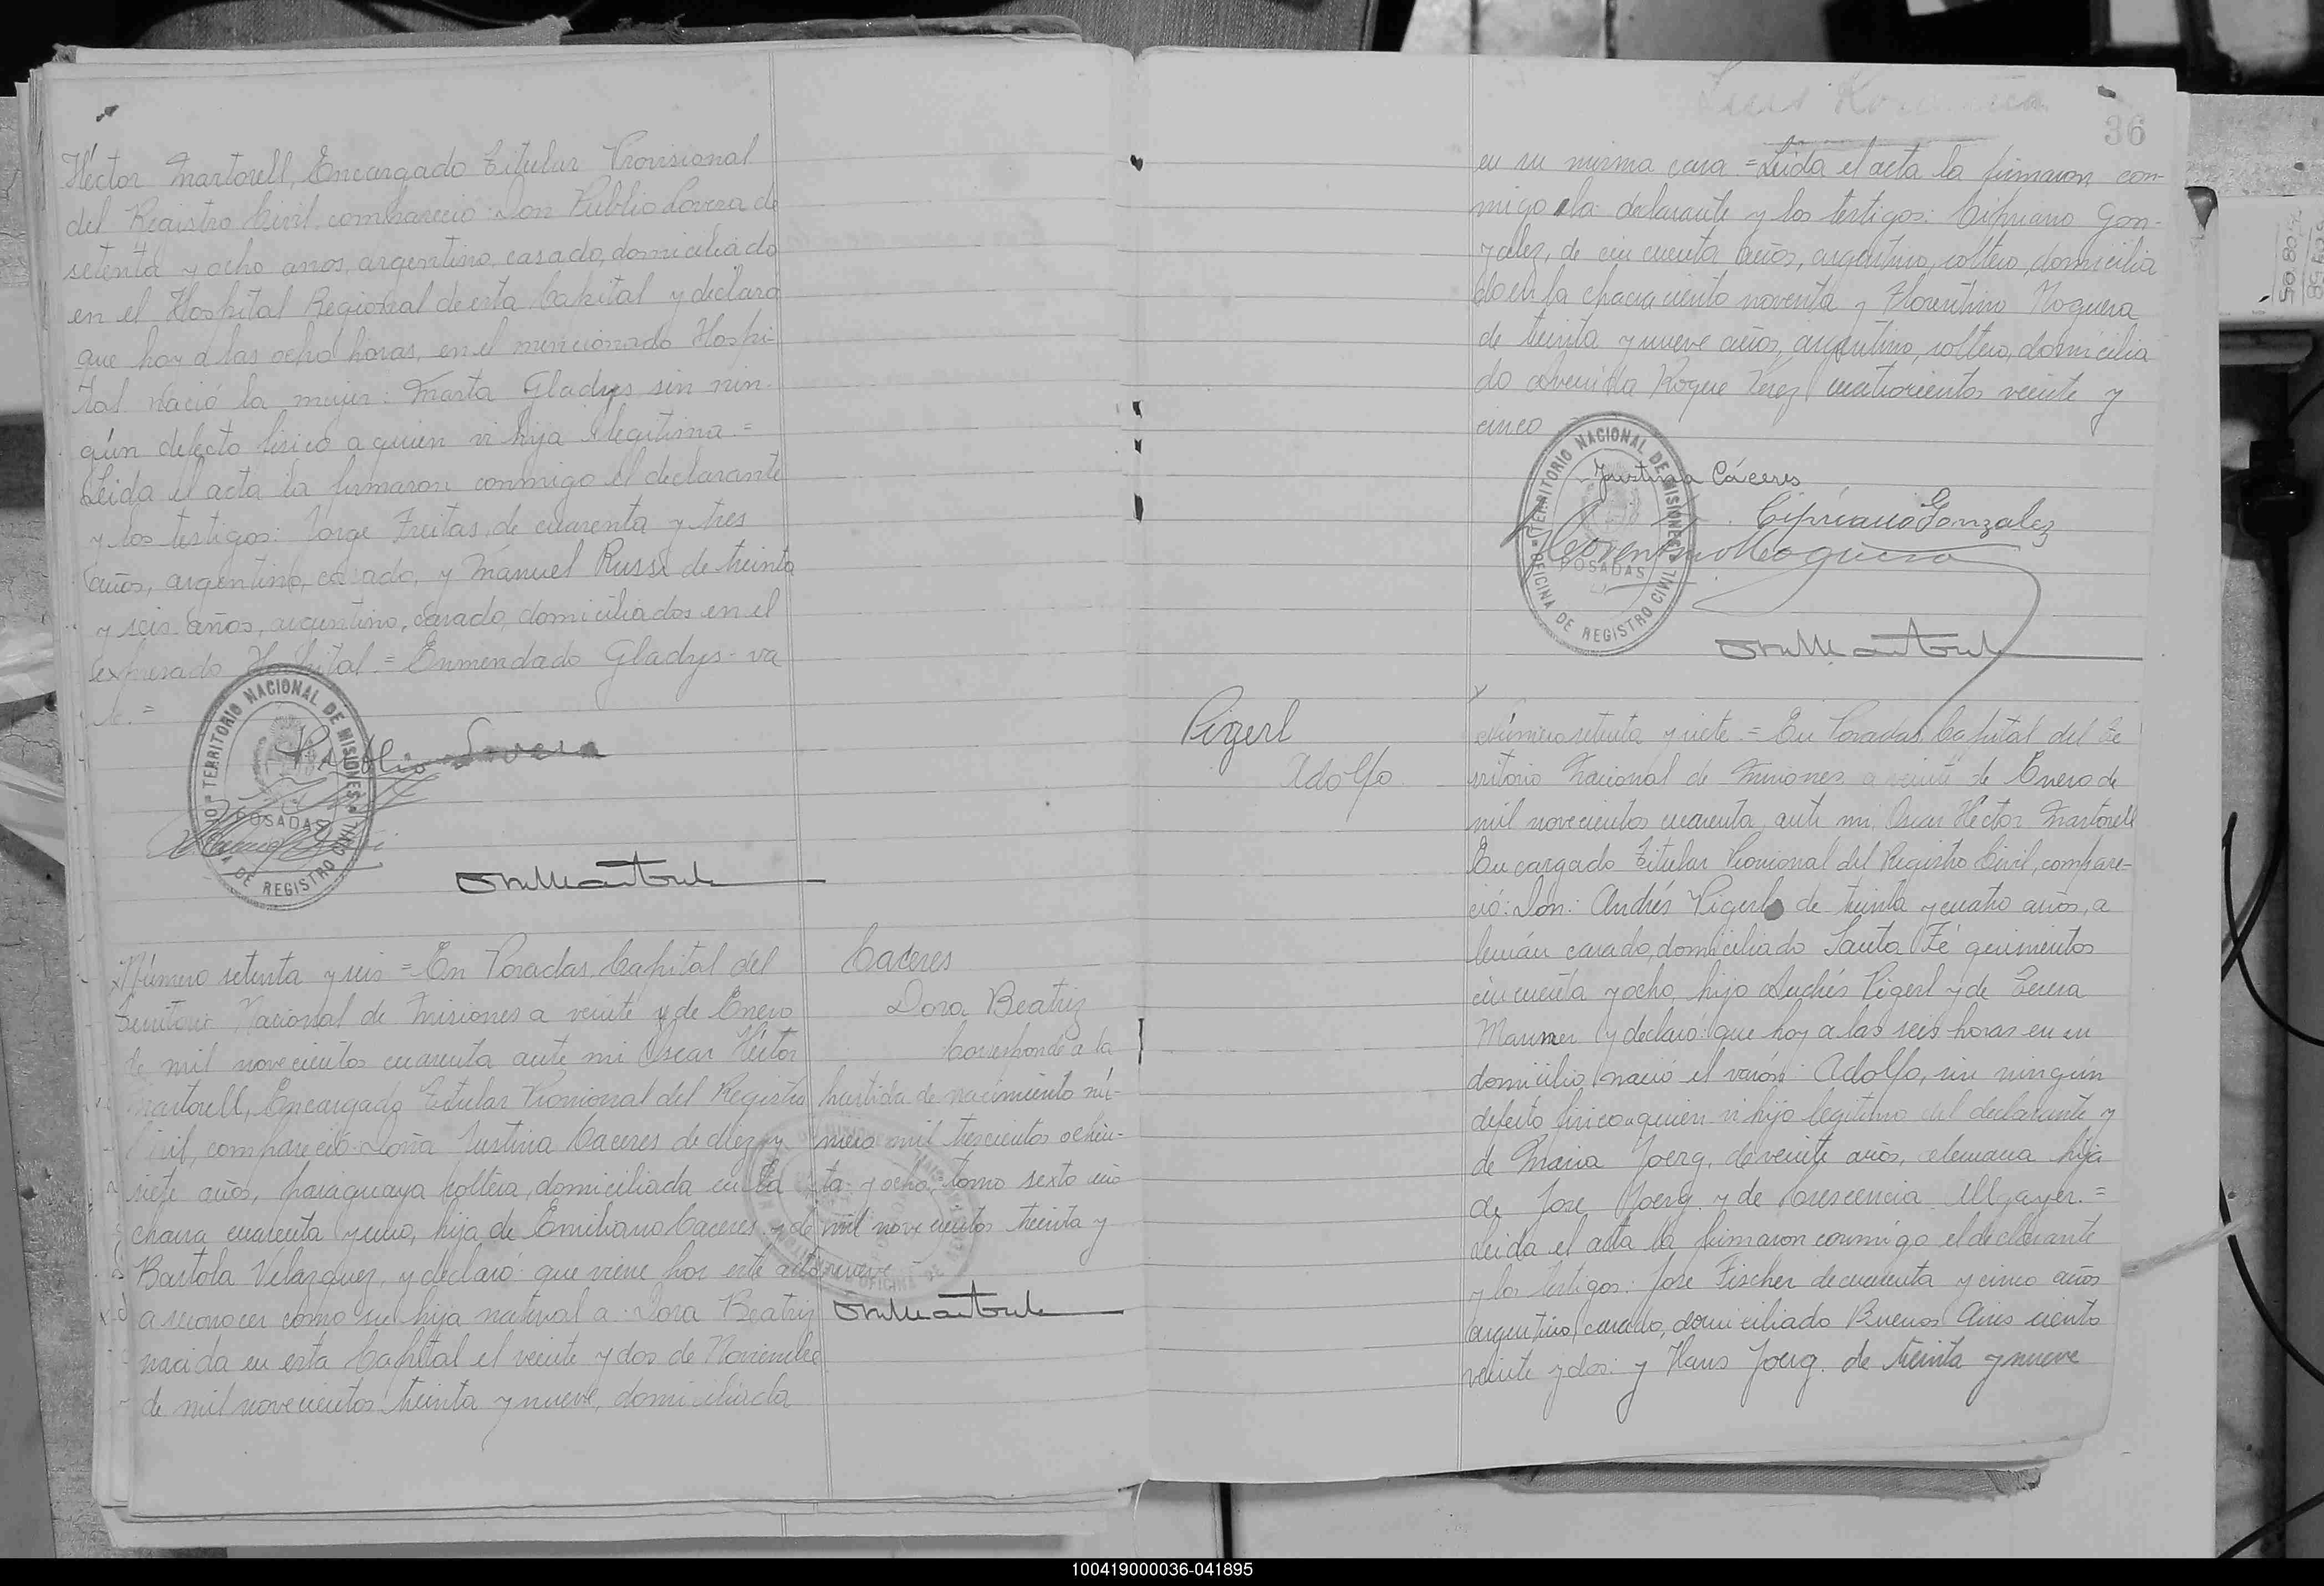 Héctor Martorell, Encargado Titular Provisional
del Registro Civil, compareció: Don Publio Lovera de
setenta y ocho años, argentino, casado, domiciliado
en el Hospital Regional de esta Capital y declaró
que hoy a las ocho horas, en el mencionado Hospi-
tal nació la mujer: Marta Gladys sin nin-
gún defecto fisico a quien vi hija ilegitima =
Leida el acta la firmaron conmigo el declarante
y los testigos: Jorge Freitas, de cuarenta y tres
años, argentino, casado, y Manuel Russi de treinta
y seis años, argentino, casado, domiciliados en el
expresado Hospital = Enmendado Gladys - va
le. =
TERRITORIO NACIONAL DE MISIONES
POSADAS
OFICINA DE REGISTRO CIVIL
Publio Lovera
Número setenta y seis = En Posadas Capital del
Territorio Nacional de Misiones a veinte y de Enero
de mil novecientos cuarenta ante mi Oscar Héctor
Martorell, Encargado Titular Provisional del Registro
Civil, compareció: Doña Justina Caceres de diez y
siete años, paraguaya soltera, domiciliada en la
chacra cuarenta y uno, hija de Emiliano Caceres y de
Bartola Velazquez, y declaró que viene por este acto
a reconocer como su hija natural a: Dora Beatriz
nacida en esta Capital el veinte y dos de Noviembre
de mil novecientos treinta y nueve, domiciliada
Caceres
Dora Beatriz
Corresponde a la
partida de nacimiento nú-
mero mil trescientos ochen-
ta y ocho, tomo sexto año
mil novecientos treinta y
nueve
36
en su misma casa = Leida el acta la firmaron con-
migo la declarante y los testigos: Cipriano Gon-
zalez, de cincuenta años, argentino, soltero, domicilia
do en la chacra ciento noventa y Florentino Noguera
de treinta y nueve años, argentino, soltero, domicilia
do Avenida Roque Perez cuatrocientos veinte y
cinco
TERRITORIO NACIONAL DE MISIONES
POSADAS
OFICINA DE REGISTRO CIVIL
Justina Cáceres
Cipriano Gonzalez
Florentino Noguera
Pigerl
Adolfo
Número setenta y siete = En Posadas, Capital del Te
rritorio Nacional de Misiones a veinte de Enero de
mil novecientos cuarenta, ante mi, Oscar Héctor Martorell
Encargado Titular Provisional del Registro Civil, compare-
ció: Don: Andrés Pigerl de treinta y cuatro años, a
lemán casado, domiciliado Santa Fé quinientos
cincuenta y ocho, hijo Andrés Pigerl y de Teresa
y declaró: que hoy a las seis horas en su
domicilio nació el varón: Adolfo, sin ningún
defecto fisico a quien vi hijo legitimo del declarante y
de Maria Joerg, de veinte años, alemana hija
de Jose Joerg y de Crescencia =
Leida el acta la firmaron conmigo el declarante
y los testigos: Jose Fischer de cuarenta y cinco años
argentino, casado, domiciliado Buenos Aires ciento
veinte y dos: y Hans Joerg. de treinta y nueve
100419000036-041895